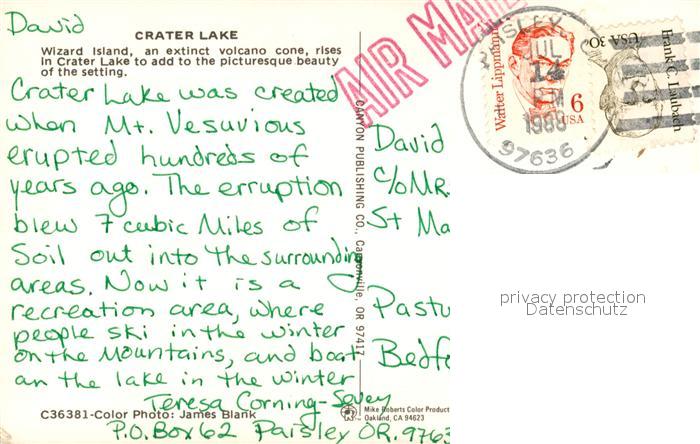 David
CRATER LAKE
Wizard Island, an extinct volcano cone, rises
in Crater Lake to add to the picturesque beauty
of the setting.
Crater Lake was created
when Mt. Vesuvious
erupted hundreds of
years ago. The erruption
blew 7 cubic Miles of
Soil out into the surrounding
areas. Now it is a
recreation area, where
people ski in the winter
on the Mountains, and boat
an the lake in the winter
Teresa Corning-Sevey
C36381-Color Photo: James Blank
P.O. Box 62 Paisley OR. 9763
CANYON PUBLISHING CO., Canyonville, OR 97417
AIR MAIL
PAISLEY
JUL
14
1989
97636
Walter Lippmann
6
USA
USA 30
Frank C. Laubach
David
C/O MR.
St Ma
Pastu
Bedfo
privacy protection
Datenschutz
Mike Roberts Color Product
Oakland, CA 94623